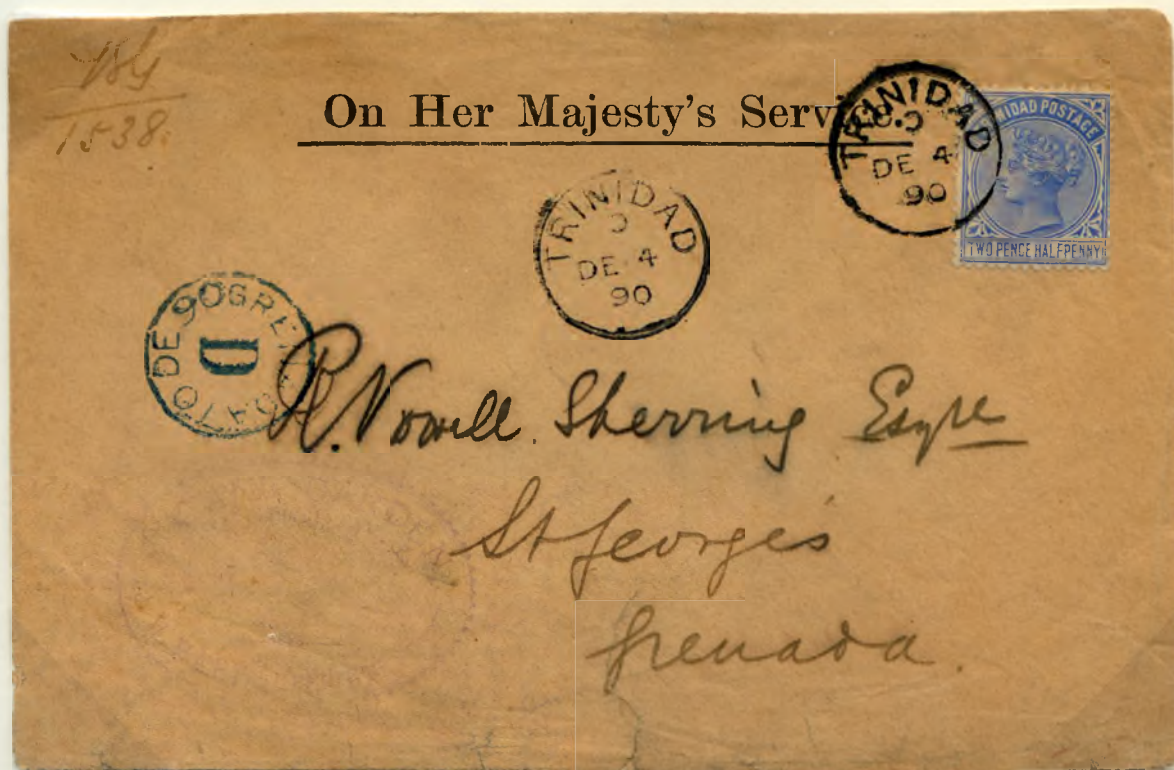 1538.
On Her Majesty's Serv
TRINIDAD
DE 4
90
TRINIDAD POSTAGE
TWO PENCE HALFPENNY
TRINIDAD
D
DE 4
90
D
R. Nowell Sherring Esqre
St George's
Grenada.